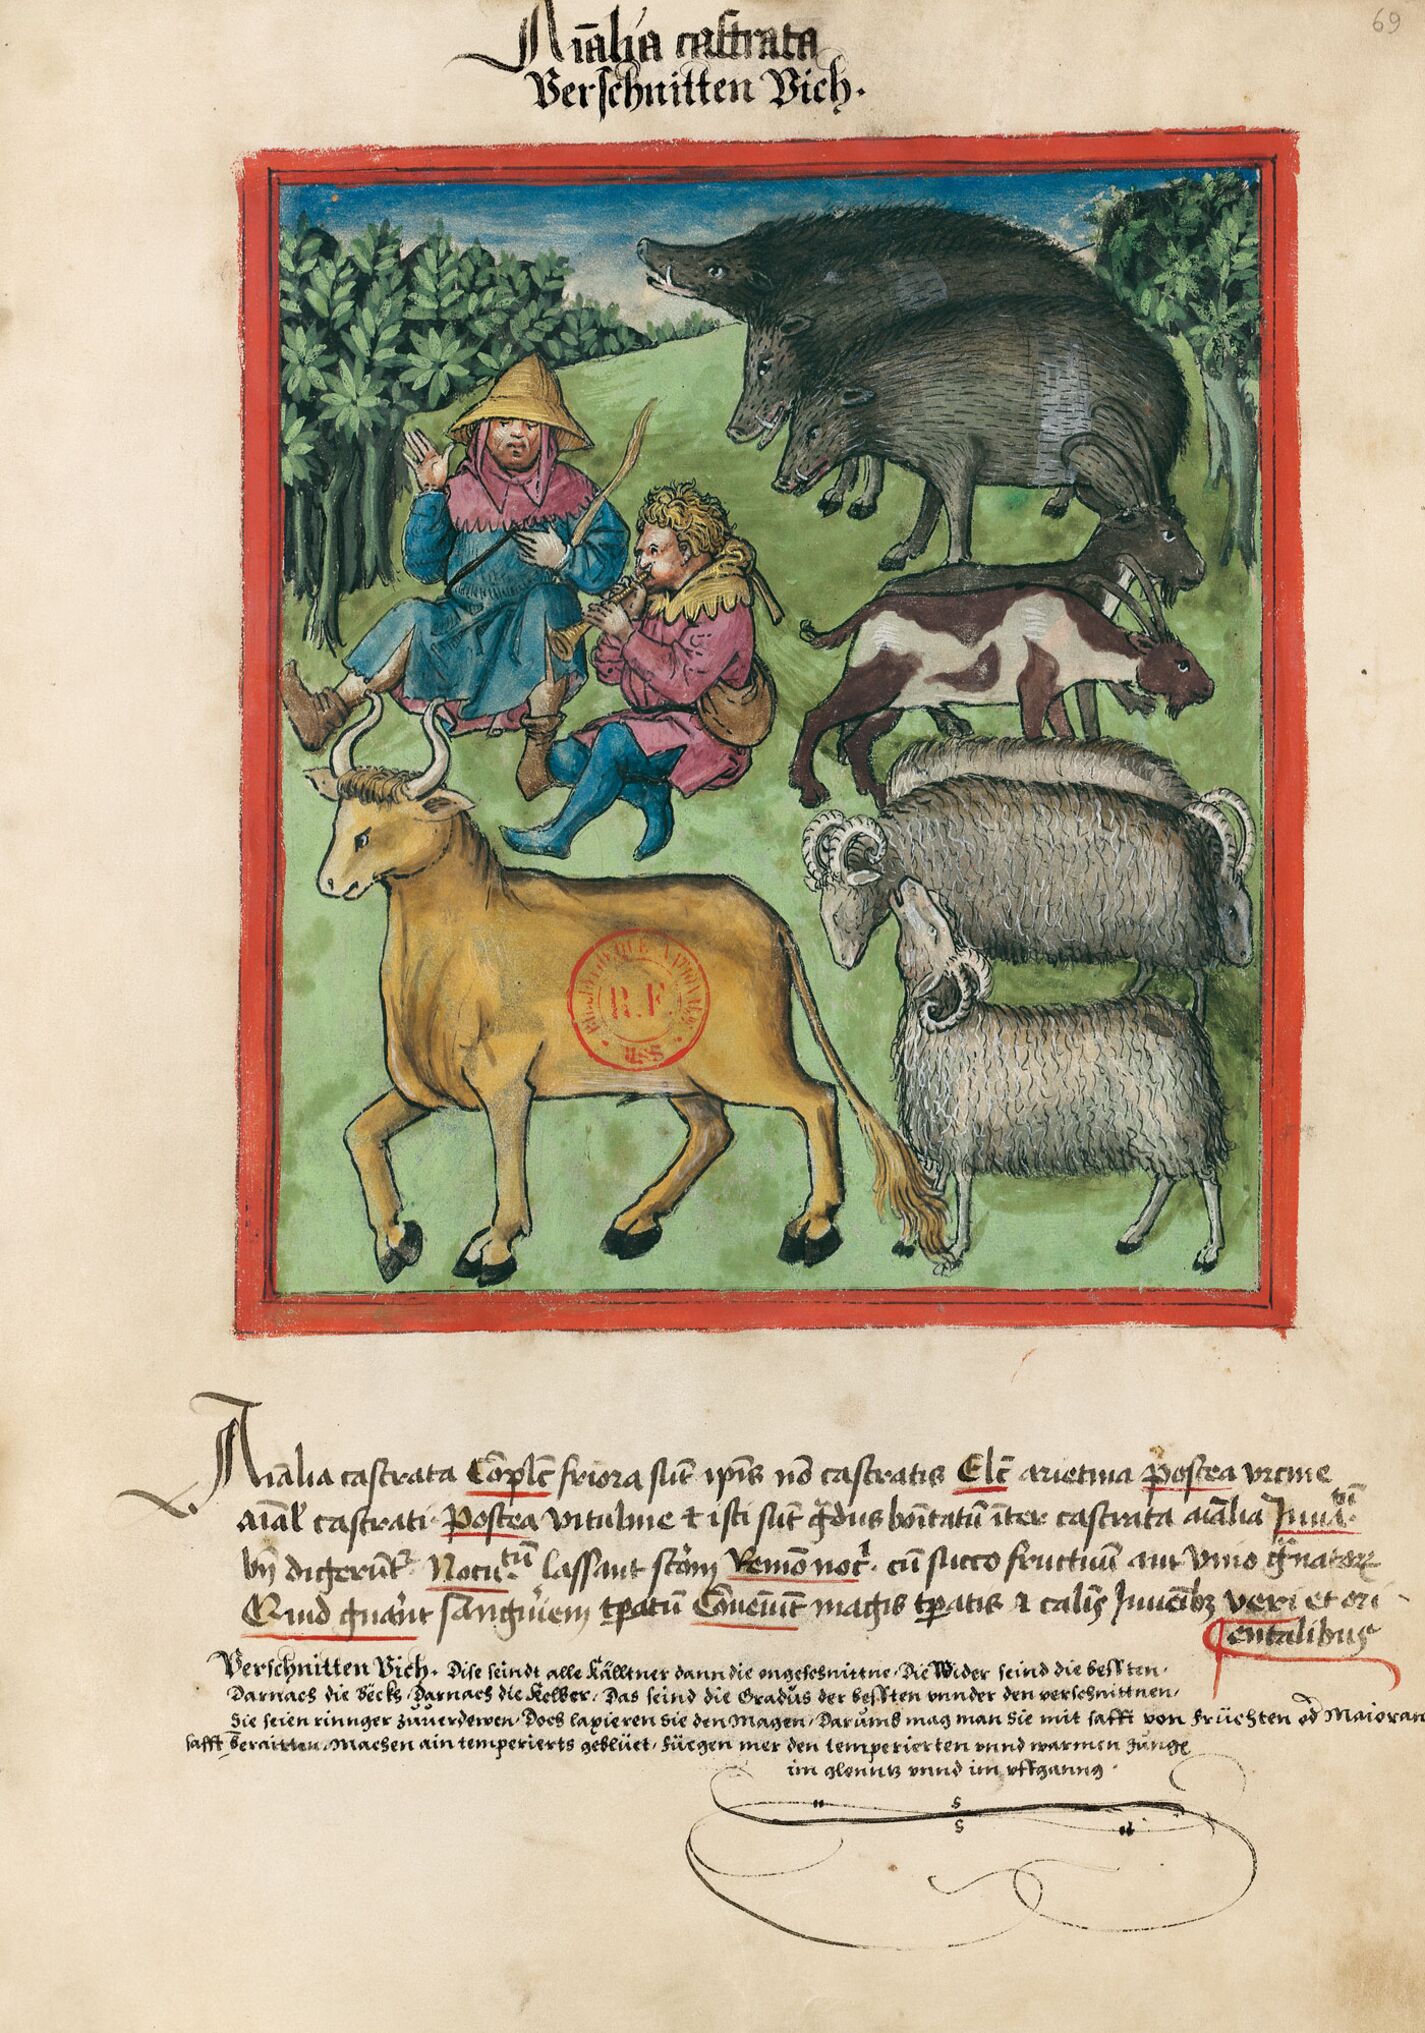 69
Aĩalia castrata
Verschnitten Vich.
BIBLIOTHEQUE NATIONALE
R.F.
MSS
Aĩalia castrata Cõplẽ friora sũt ipĩs nõ castratis Elẽ arietina postea vrcine
aĩal castrati. Postea vituline ⁊ isti sũt gͣdus boĩtatũ ĩter castrata aĩalia Juuã.
bñ digerũt. Nocũ.tũ laxant stõm Remõ noc. cũ succo fructuũ aut vino
Quid gñant sanguĩem tp̃atũ Cõueniũt magis tp̃atis ⁊ calis Juuẽibꝫ veri et ori
entalibus
Verschnitten Vich. Dise seindt alle källtner dann die ongeschnittne. Die Wider seind die bessten.
Darnach die Böcks. Darnach die Kelber. Das seind die Gradus der bessten vnnder den verschnittnen.
Sie seien rinnger zuuerdewen. Doch laxieren sie den Magen. Darumb mag man sie mit safft von früchten od Maioran
safft beraitten. Machen ain temperierts geblüet. füegen mer den temperierten vnnd warmen Junge
im glenntz vnnd im vffganng.